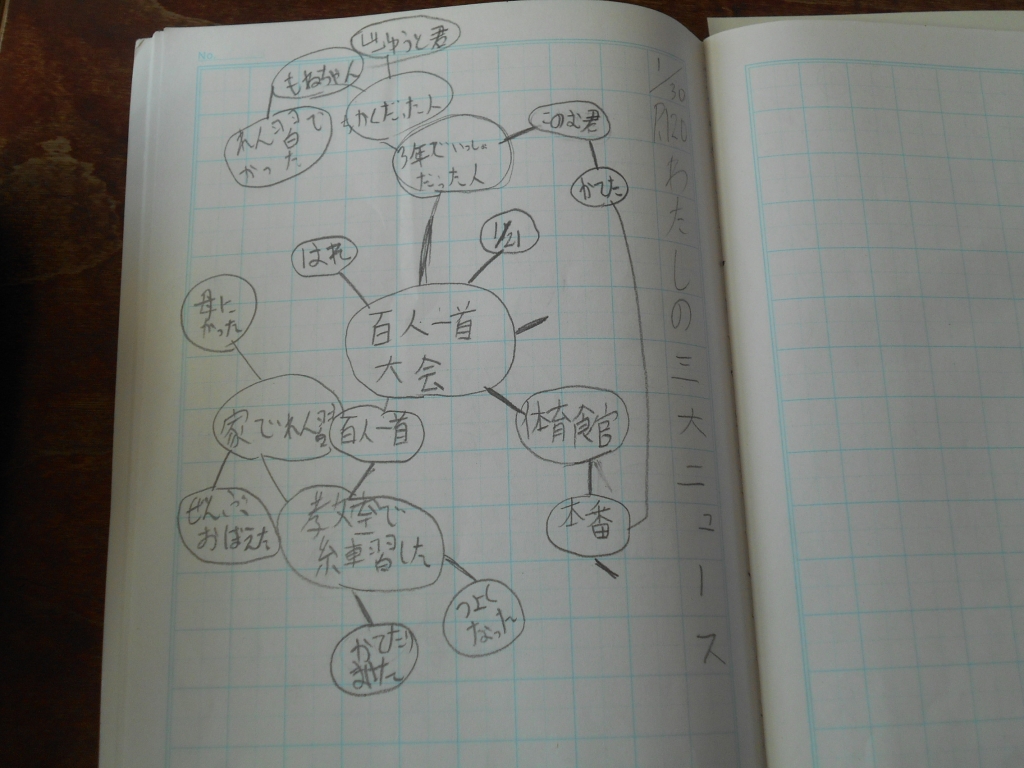 No.
1/30
わたしの三大ニュース
じゅうと君
もねちゃん
ちかくだった人
れん習で
かった
3年でいっしょ
だった人
このむ君
かてた
1/21
はれ
百人一首
大会
母に
かった
家でれん習
百人一首
体育館
ぜんぶ
おぼえた
教室で
練習した
本番
つよく
なった
かてたり
まけた